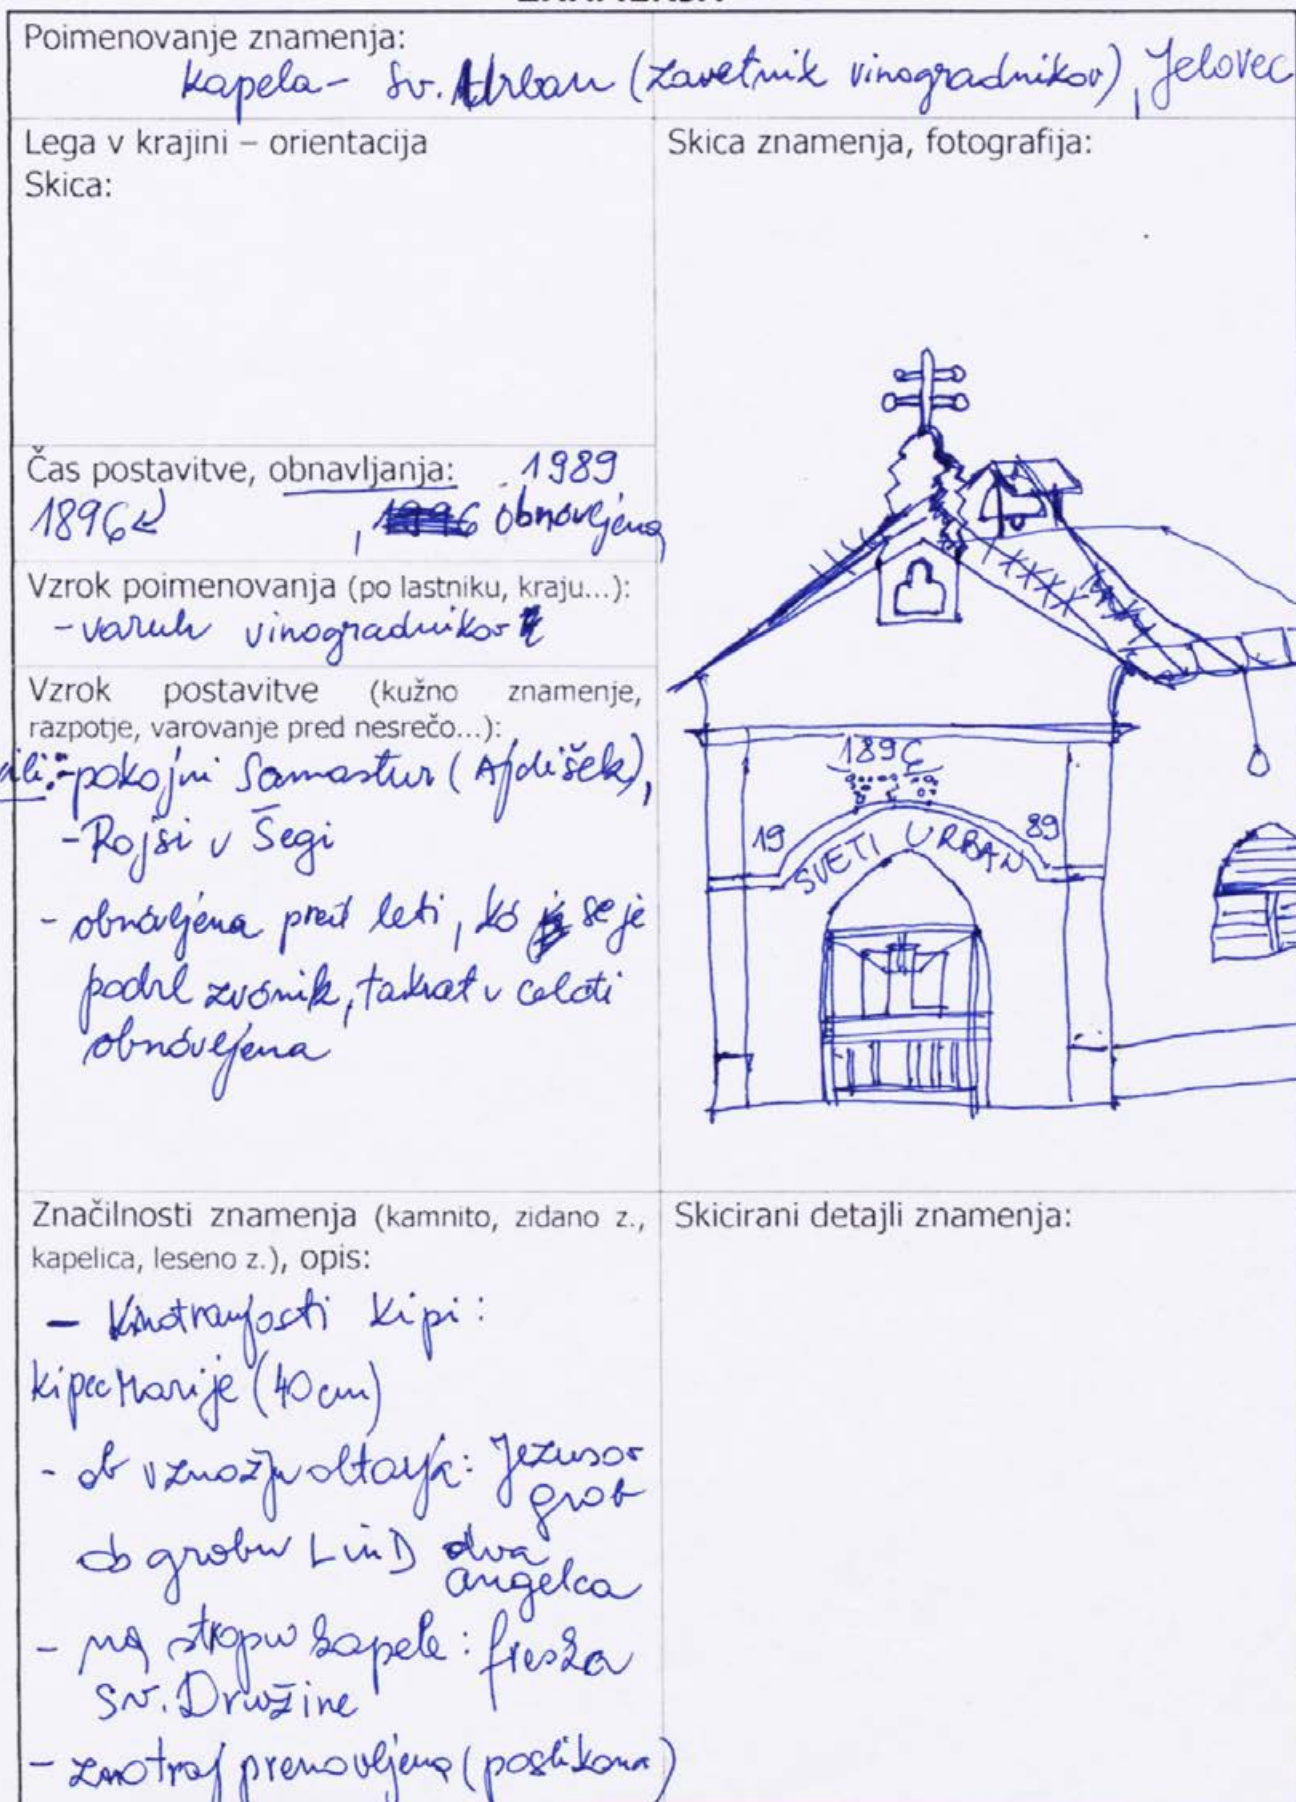 Poimenovanje znamenja:
kapela - Sv. Urban (zavetnik vinogradnikov), Jelovec
Lega v krajini – orientacija
Skica:
Skica znamenja, fotografija:
Čas postavitve, obnavljanja: 1989
1896 , obnovljena
Vzrok poimenovanja (po lastniku, kraju...):
- varuh vinogradnikov
Vzrok postavitve (kužno znamenje,
razpotje, varovanje pred nesrečo...):
- pokojni Samastur (Ajdišek),
- Rojsi v Šegi
- obnovljena pred leti, ko se je
podrl zvonik, takrat v celoti
obnovljena
1896
19 89
SVETI URBAN
Značilnosti znamenja (kamnito, zidano z.,
kapelica, leseno z.), opis:
- V notranjosti kipi:
kipec Marije (40 cm)
- ob vznožju oltarja: Jezusov
grob
ob grobu L in D dva
angelca
- na stropu kapele: freska
sv. Družine
- znotraj prenovljena (poslikana)
Skicirani detajli znamenja: